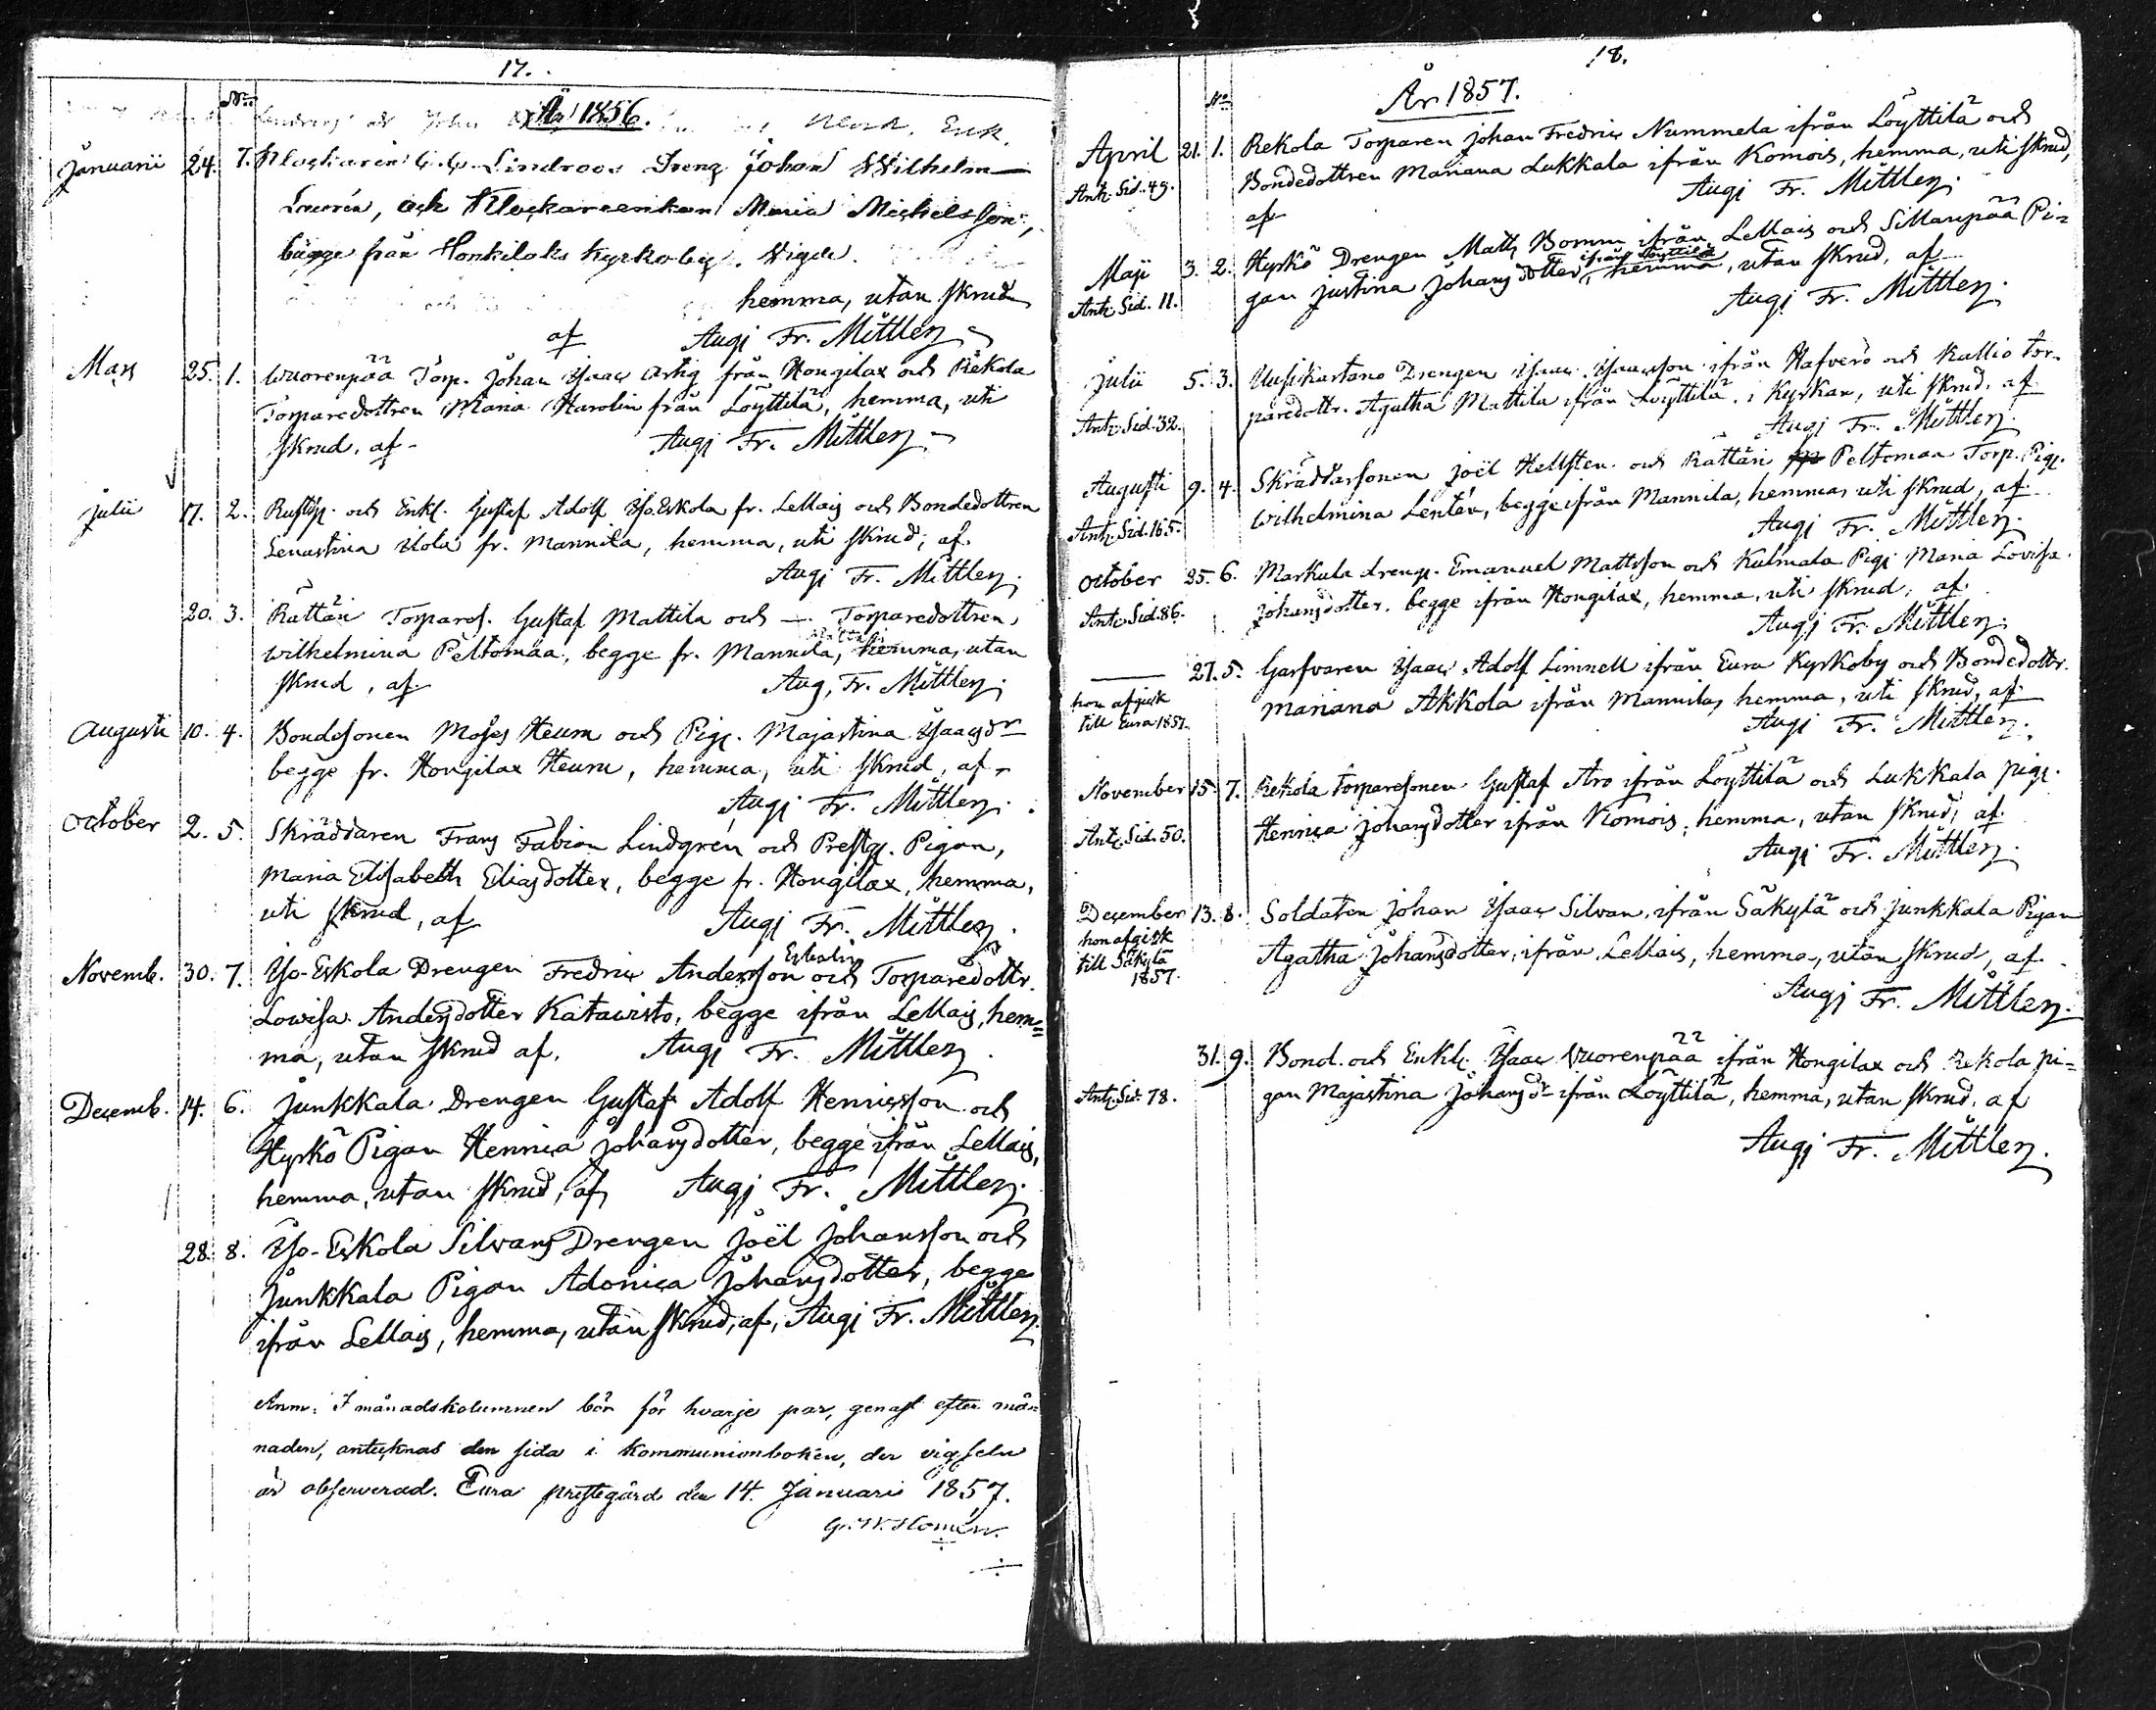 17.
No
År 1856.
Januarii 24. 7. Klockaren Lindroos Dreng Johan Wilhelm
Laurén, och Klockareenkan Maria Michelsson,
bägge från Honkilaks Kyrkoby. Vigde
hemma, utan skrud
af Augj Fr. Mittler
Mars 25. 1. Wuorenpää Torp. Johan Isaac Artig från Hongilax och Rekola
Torparedottren Maria Harolin från Löyttilä, hemma, uti
skrud, af Augj Fr. Mittler
Julii 17. 2. Rusth. och Enkl. Gustaf Adolf Iso-Eskola fr. Lellais och Bondedottren
Lenastina Uola fr. Mannila, hemma, uti skrud, af
Augj Fr. Mittler
20. 3. Rättäri Torpares. Gustaf Mattila och — Torparedottren
Wilhelmina Peltomaa, begge fr. Mannila, hemma, utan
skrud, af Aug, Fr. Mittler
Augusti 10. 4. Bondesonen Moses Heum och Pig. Majastina Isaacsdr
begge fr. Hongilax Heum, hemma, uti skrud, af
Augj Fr. Mittler
October 2. 5. Skräddaren Frans Fabian Lindgrén och Prestg. Pigan,
Maria Elisabeth Eliasdotter, begge fr. Hongilax, hemma,
uti skrud, af Augj Fr. Mittler
Novemb. 30. 7. Iso-Eskola Drengen Fredric Andersson och Torparedottr.
Lowisa Andersdotter Katawisto, begge ifrån Lellais, hem=
ma, utan skrud af, Augj Fr. Mittler
Decemb. 14. 6. Junkkala Drengen Gustaf Adolf Henricsson och
Hyrkö Pigan Henrica Johansdotter, begge ifrån Lellais,
hemma, utan skrud, af Augj Fr. Mittler
28. 8. Iso-Eskola Silvans Drengen Joël Johansson och
Junkkala Pigan Adonica Johansdotter, begge
ifrån Lellais, hemma, utan skrud, af, Augj Fr. Mittler
Anm: I månadskolumnen bör för hvarje par, genast efter må=
naden, antecknas den sida i Kommunionboken, der vigseln
är observerad. Eura prestegård den 14. Januari 1857.
G. W. Homén.
18.
No
År 1857.
April 21. 1. Rekola Torparen Johan Fredric Nummela ifrån Löyttilä och
Ant. Sid. 49. Bondedottren Mariana Lukkala ifrån Komois, hemma, uti skrud,
af Augj Fr. Mittler
Maji 3. 2. Hyrkö Drengen Matts Bomm ifrån Lellais och Sillanpää Pi=
ifrån Löyttilä
Ant. Sid. 11. gan Justina Johansdotter, hemma, utan skrud, af
Augj Fr. Mittler
Julii 5. 3. Uusikartano Drengen Isaac Isaacsson ifrån Hafverö och Kallio tor-
Ant. Sid. 32. paredottr. Agatha Mattila ifrån Löyttilä, i Kyrkan, uti skrud, af
Augj Fr. Mittler
Augusti 9. 4. Skräddarsonen Joël Hellsten och Rättäri Peltomaa Torp. Pig.
Ant. Sid. 165. Wilhelmina Lentén, begge ifrån Mannila, hemma, uti skrud, af
Augj Fr. Mittler
October 25. 6. Markula dreng. Emanuel Mattsson och Kulmala Pig. Maria Lovisa
Ant. Sid. 86. Johansdotter, begge ifrån Hongilax, hemma, uti skrud, af
Augj Fr. Mittler
— 27. 5. Garfvaren Isaac Adolf Limnell ifrån Eura Kyrkoby och Bondedottr.
hon afgick
till Eura 1857. Mariana Akkola ifrån Mannila, hemma, uti skrud, af
Augj Fr. Mittler
November 15. 7. Rekola torparesonen Gustaf Aro ifrån Löyttilä och Lukkala pig.
Ant. Sid. 50. Henrica Johansdotter ifrån Komois, hemma, utan skrud, af
Augj Fr. Mittler
December 13. 8. Soldaten Johan Isaac Silvan, ifrån Säkylä och Junkkala Pigan
hon afgick
till Säkylä
1857. Agatha Johansdotter, ifrån Lellais, hemma, utan skrud, af
Augj Fr. Mittler
31. 9. Bond. och Enkl. Isaac Wuorenpää ifrån Hongilax och Rekola pi=
Ant. Sid. 78. gan Majastina Johansdr ifrån Löyttilä, hemma, utan skrud, af
Augj Fr. Mittler